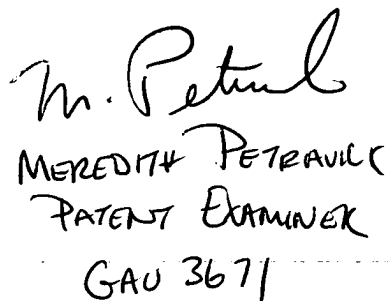 M. Petravick
MEREDITH PETRAVICK
PATENT EXAMINER
GAU 3671